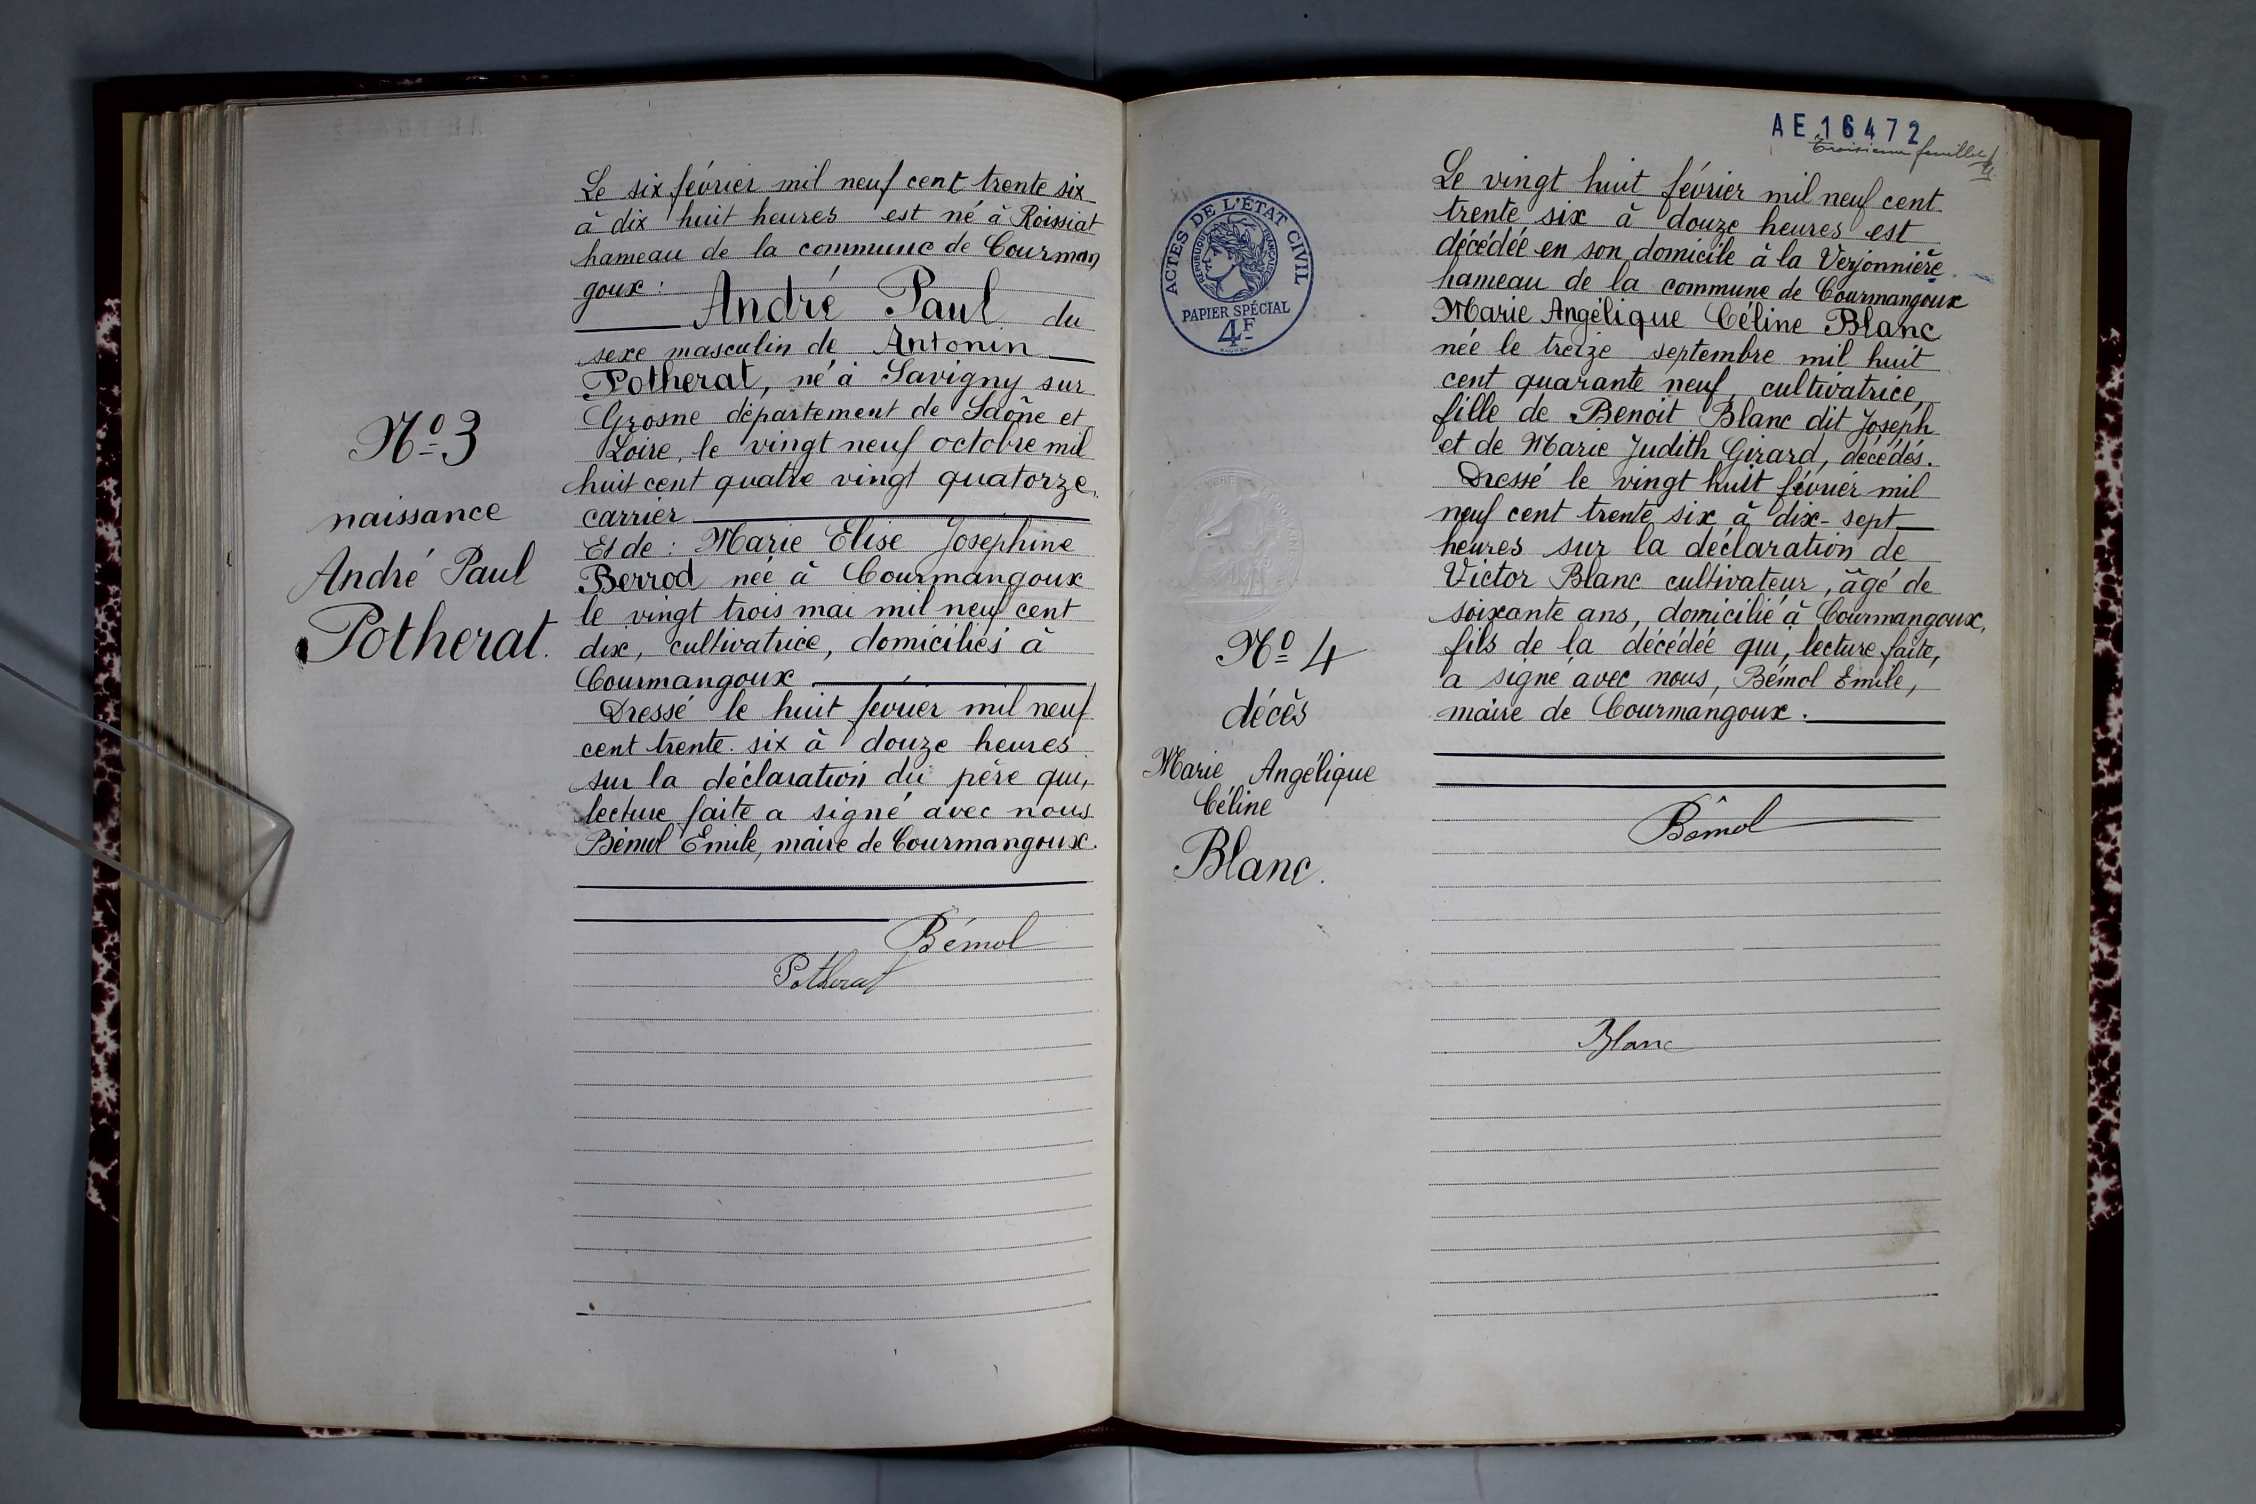 Le six février mil neuf cent trente six
à dix huit heures est né à Roissiat
hameau de la commune de Courman
goux :
André Paul du
sexe masculin de Antonin
Potherat, né à Savigny sur
Grosne département de Saône et
Loire, le vingt neuf octobre mil
huit cent quatre vingt quatorze,
carrier
Et de : Marie Elise Josephine
Berrod née à Courmangoux
le vingt trois mai mil neuf cent
dix, cultivatrice, domiciliés à
Courmangoux
Dressé le huit février mil neuf
cent trente six à douze heures
sur la déclaration du père qui,
lecture faite a signé avec nous
Bémol Emile, maire de Courmangoux.
Bémol
Potherat
Nº 3
naissance
André Paul
Potherat.
AE 16472
Troisième feuillet
ACTES DE L'ÉTAT CIVIL
RÉPUBLIQUE FRANÇAISE
PAPIER SPÉCIAL
4F
Le vingt huit février mil neuf cent
trente six à douze heures est
décédée en son domicile à la Verjonnière
hameau de la commune de Courmangoux
Marie Angélique Céline Blanc
née le treize septembre mil huit
cent quarante neuf, cultivatrice,
fille de Benoit Blanc dit Joseph
et de Marie Judith Girard, décédés.
Dressé le vingt huit février mil
neuf cent trente six à dix-sept
heures sur la déclaration de
Victor Blanc cultivateur, âgé de
soixante ans, domicilié à Courmangoux,
fils de la décédée qui, lecture faite,
a signé avec nous, Bémol Emile,
maire de Courmangoux.
Bémol
Blanc
Nº 4
décès
Marie Angélique
Céline
Blanc.